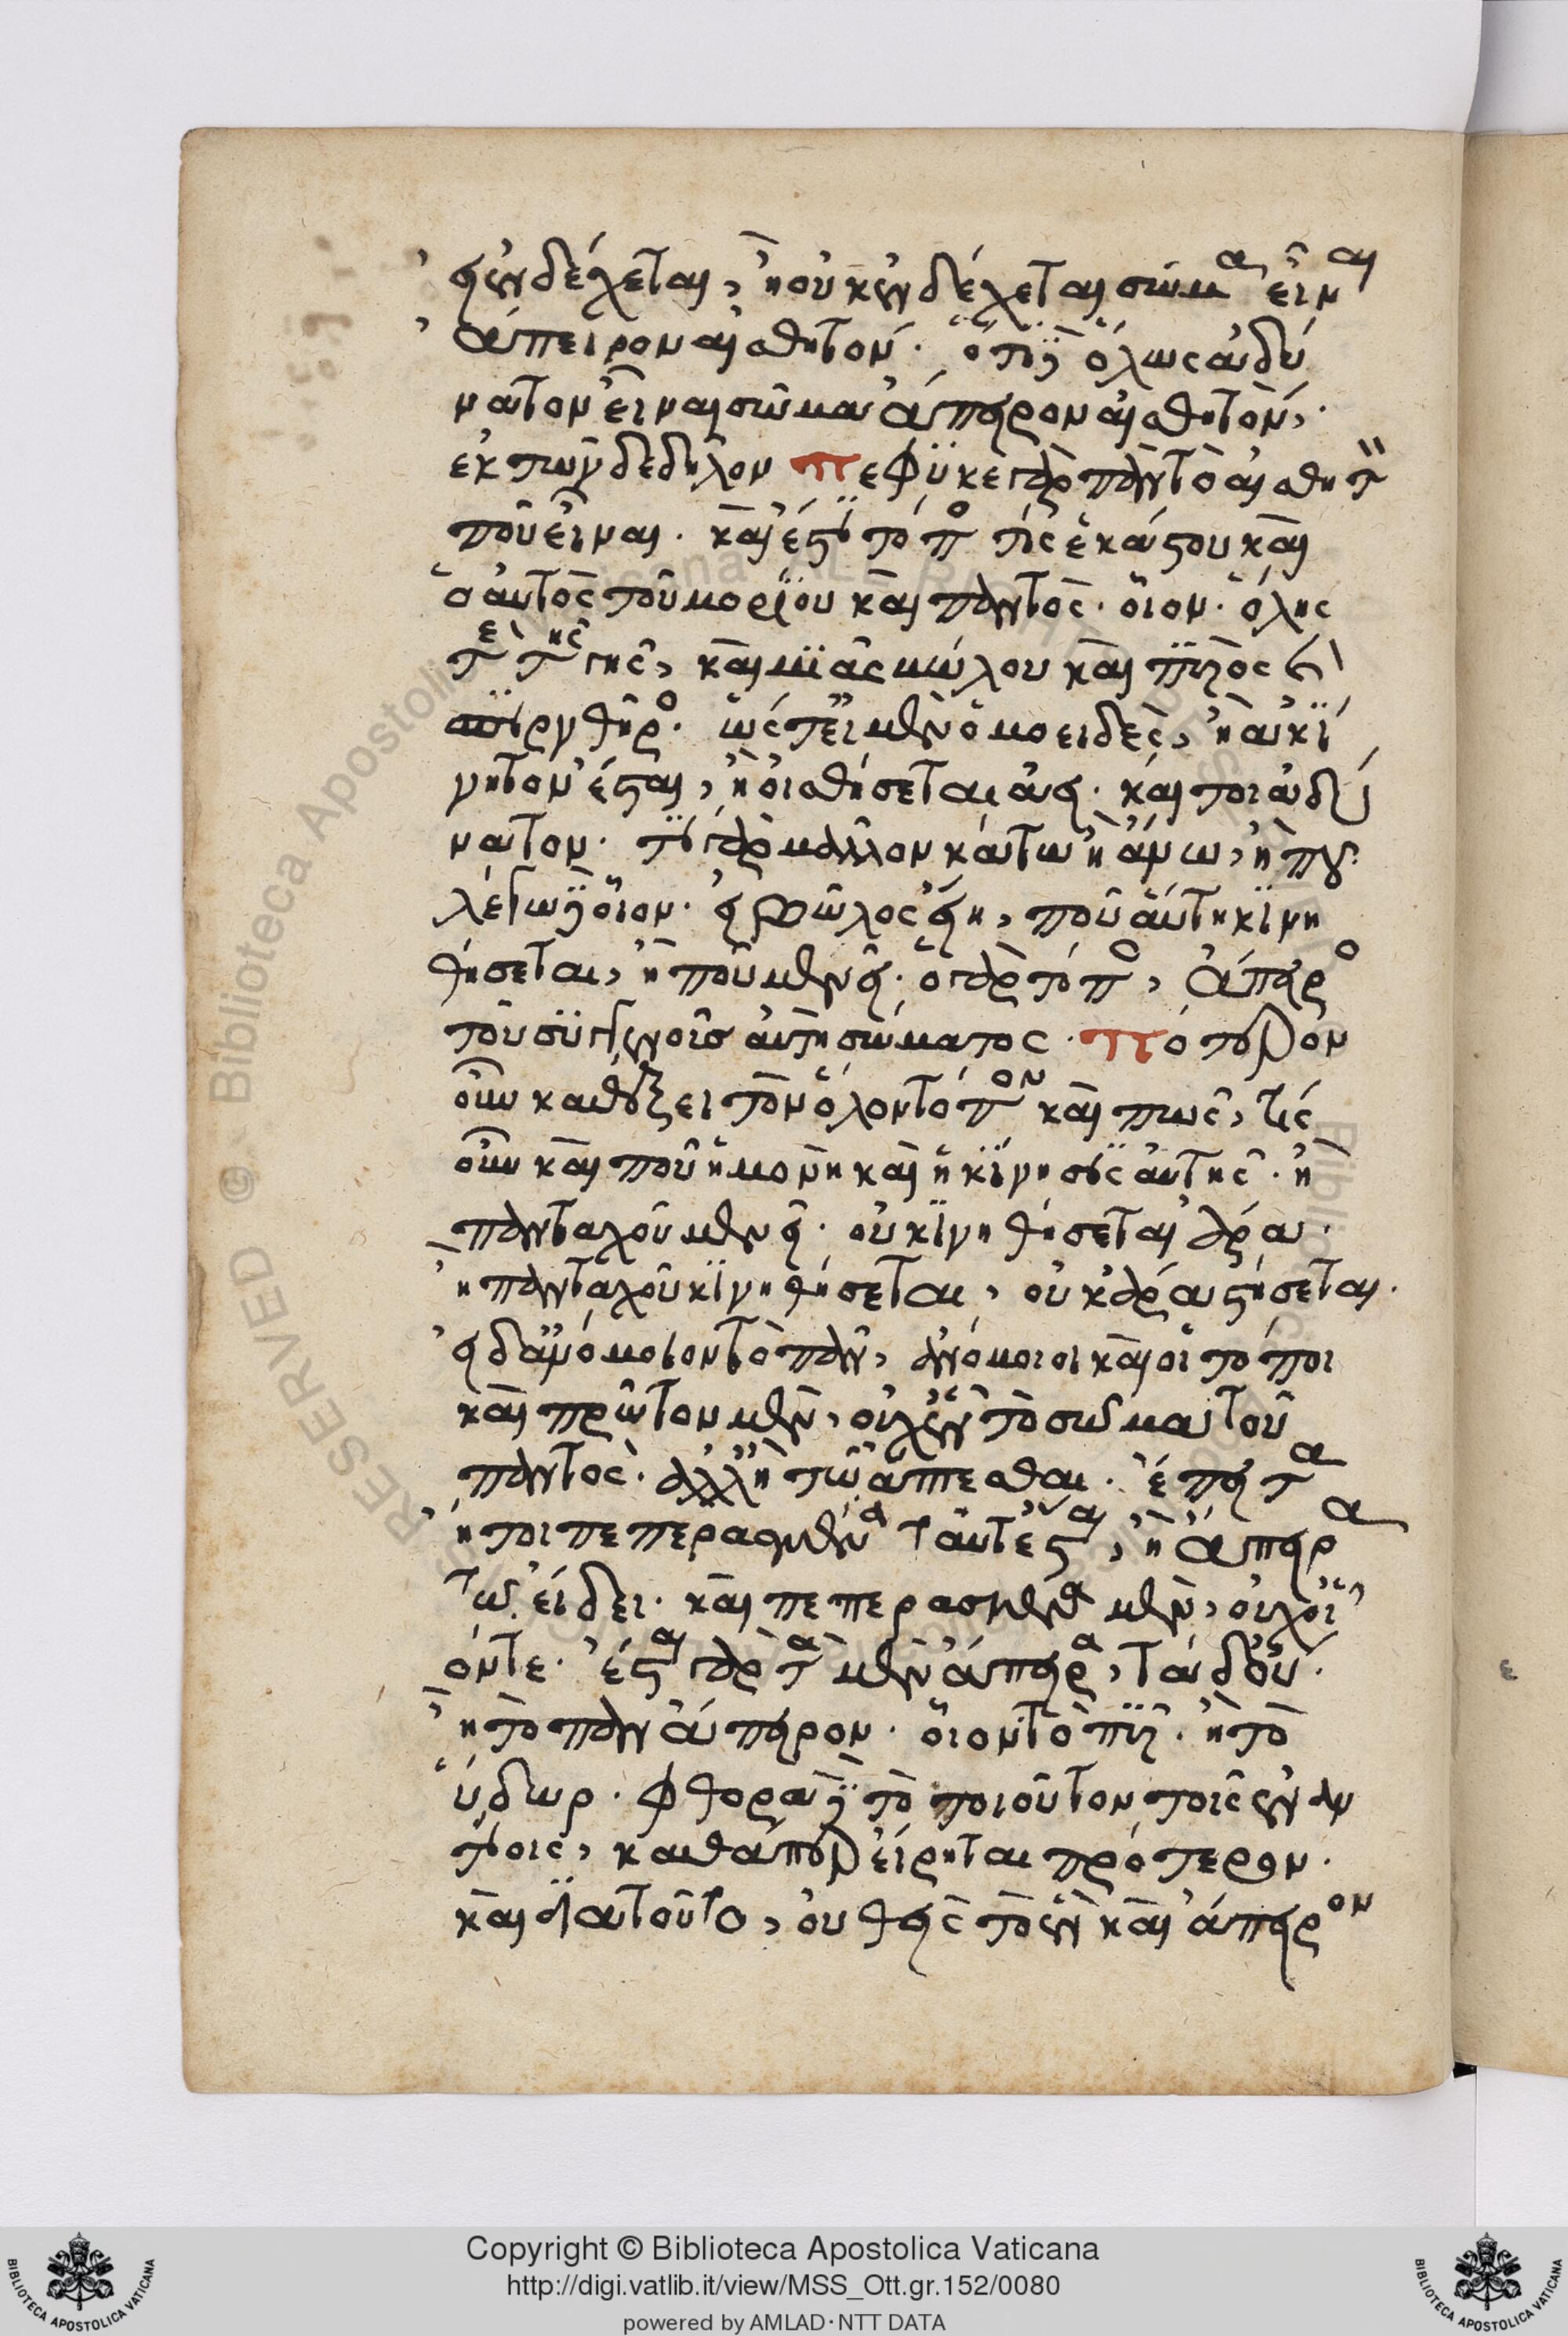 εἰ ἐνδέχεται, ἢ οὐκ ἐνδέχεται σῶμα εἶναι
ἄπειρον αἰσθητόν. ὅτι δὲ ὅλως ἀδύ
νατον εἶναι σῶμα ἄπειρον αἰσθητὸν,
ἐκ τῶνδε δῆλον πέφυκε γὰρ πᾶν τὸ αἰσθητὸν
ποῦ εἶναι. καὶ ἔστι τόπος τις ἑκάστου καὶ
ὁ αὐτὸς τοῦ μορίου καὶ παντός. οἷον. ὅλης
τε τῆς γῆς, καὶ μιᾶς βώλου καὶ πυρὸς καὶ
σπινθῆρος. ὥστε εἰ μὲν ὁμοειδὲς, ἢ ἀκί
νητον ἔσται, ἢ οἰσθήσεται ἀεί. καί τοι ἀδύ
νατον. τί γὰρ μᾶλλον κάτω ἢ ἄνω, ἢ που
λέγω δὲ οἷον. εἰ βῶλος εἴη, ποῦ αὕτη κινη
θήσεται, ἢ ποῦ μενεῖ. ὁ γὰρ τόπος, ἄπειρος
τοῦ συγγενοῦς αὐτῇ σώματος. πότερον
οὖν καθέξει τὸν ὅλον τόπον καὶ πῶς, τίς
οὖν καὶ ποῦ ἡ μονὴ καὶ ἡ κίνησις αὐτῆς. ἢ
πανταχοῦ μενεῖ. οὐ κινηθήσεται ἄρα.
ἢ πανταχοῦ κινηθήσεται, οὐκ ἄρα στήσεται.
εἰ δ' ἀνόμοιον τὸ πᾶν, ἀνόμοιοι καὶ οἱ τόποι
καὶ πρῶτον μὲν, οὐχ ἓν τὸ σῶμα τοῦ
παντὸς. ἀλλ' ἢ τῷ ἅπτεσθαι. ἔπειτα
ἤτοι πεπερασμένα ταῦτ' ἔσται, ἢ ἄπειρα
τῷ εἴδει. καὶ πεπερασμένα μὲν, οὐχ οἷ
όν τε. ἔσται γὰρ τὰ μὲν ἄπειρα, τὰ δ' οὔ.
ἢ τὸ πᾶν ἄπειρον. οἷον τὸ πῦρ. ἢ τὸ
ὕδωρ. φθορὰ δὲ τὸ τοιοῦτον τοῖς ἐναν
τίοις, καθάπερ εἴρηται πρότερον.
καὶ διὰ τοῦτο, οὐθεὶς τὸ ἓν καὶ ἄπειρον
Copyright © Biblioteca Apostolica Vaticana
http://digi.vatlib.it/view/MSS_Ott.gr.152/0080
powered by AMLAD·NTT DATA